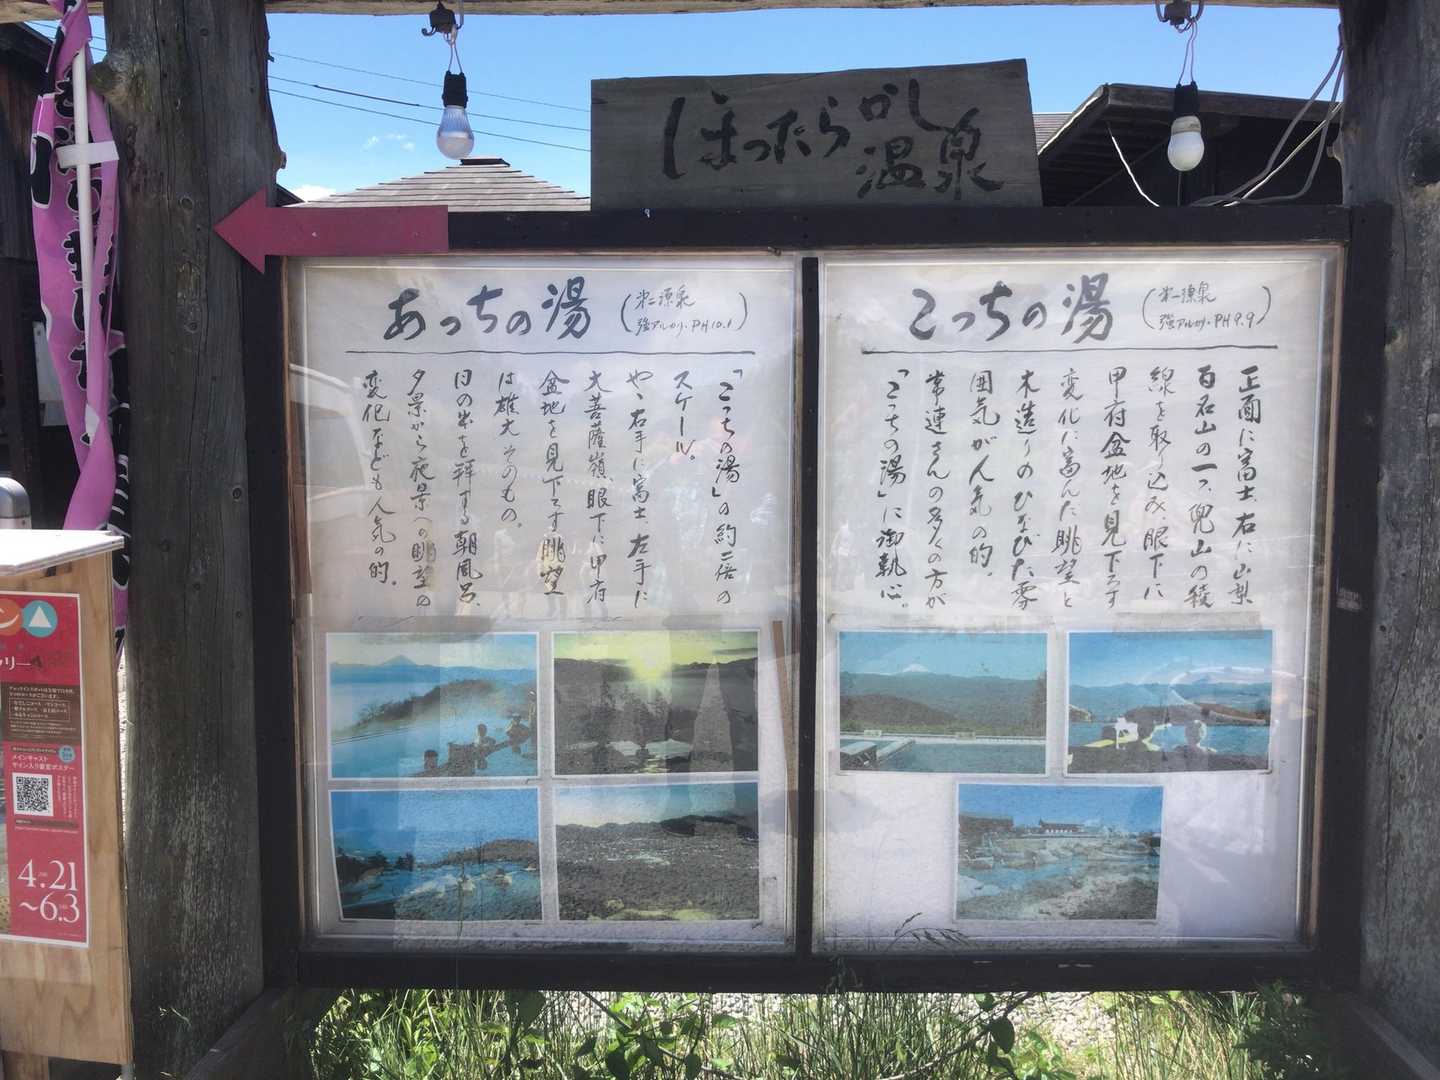 ほったらかし
温泉
あっちの湯
(第二源泉
強アルカリ・PH10.1)
「こっちの湯」の約二倍の
スケール。
やゝ右手に富士、左手に
大菩薩嶺、眼下に甲府
盆地を見下ろす眺望
は雄大そのもの。
日の出を拝する朝風呂、
夕景から夜景への眺望の
変化なども人気の的。
こっちの湯
(第一源泉
強アルカリ・PH9.9)
正面に富士、右に山梨
百名山の一つ、兜山の稜
線を取り込み、眼下に
甲府盆地を見下ろす
変化に富んだ眺望と
木造りのひなびた雰
囲気が人気の的。
常連さんの多くの方が
「こっちの湯」に御執心。
メインキャスト
サイン入り番宣ポスター
4.21
～6.3